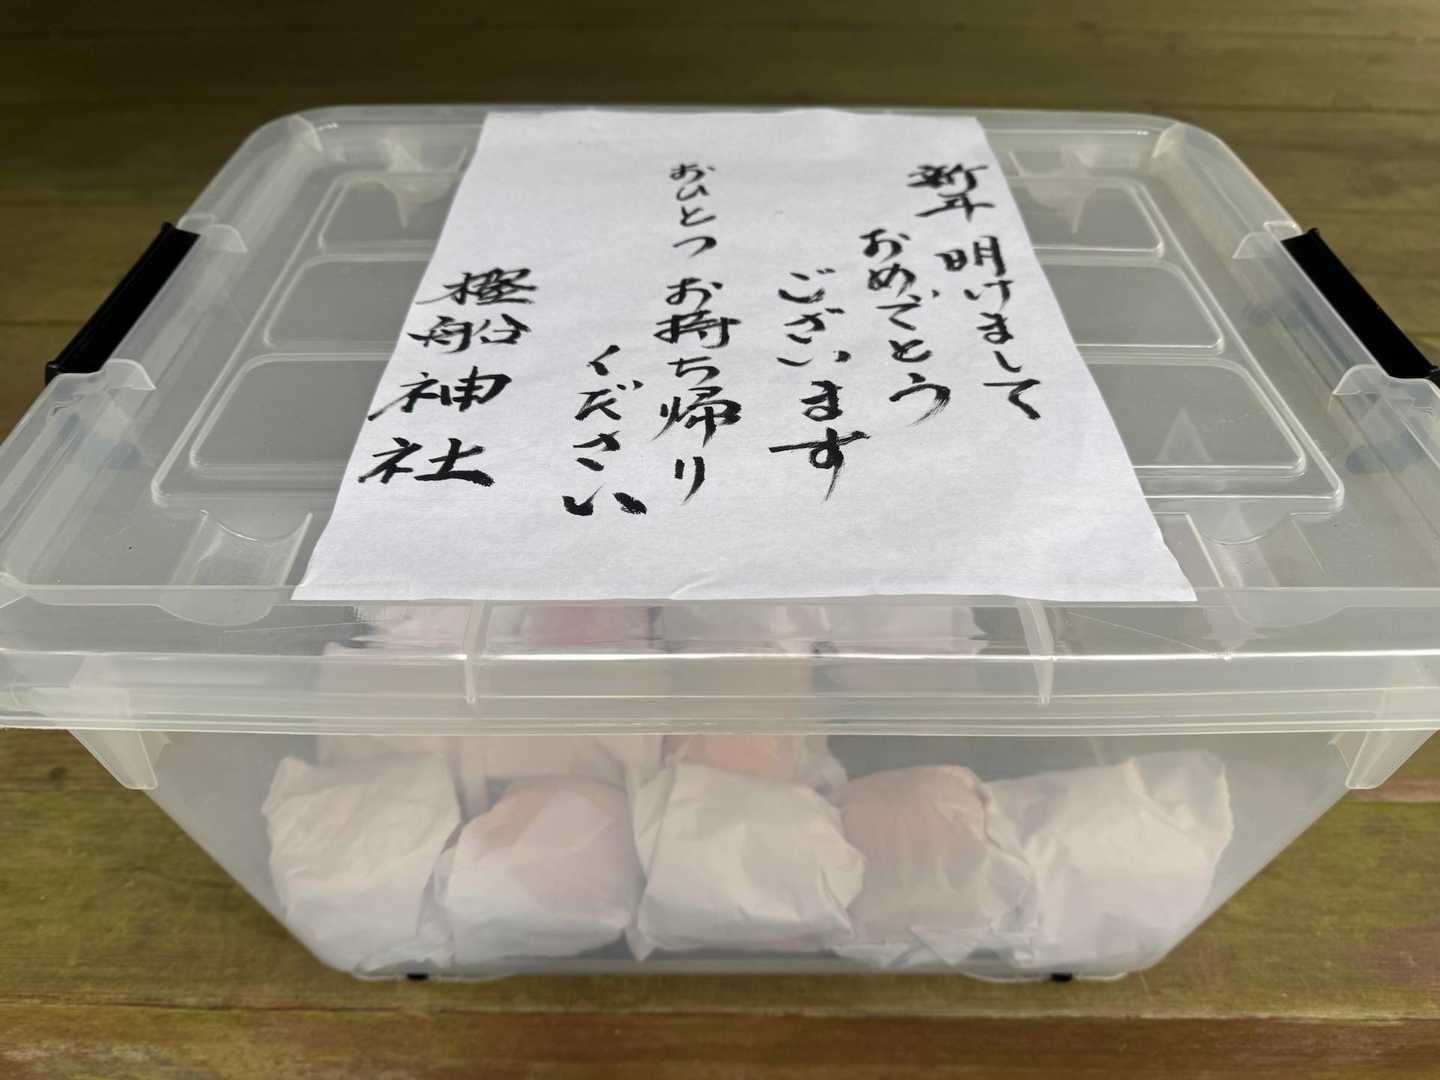 新年 明けまして
おめでとう
ございます
おひとつ お持ち帰り
ください
樫船神社